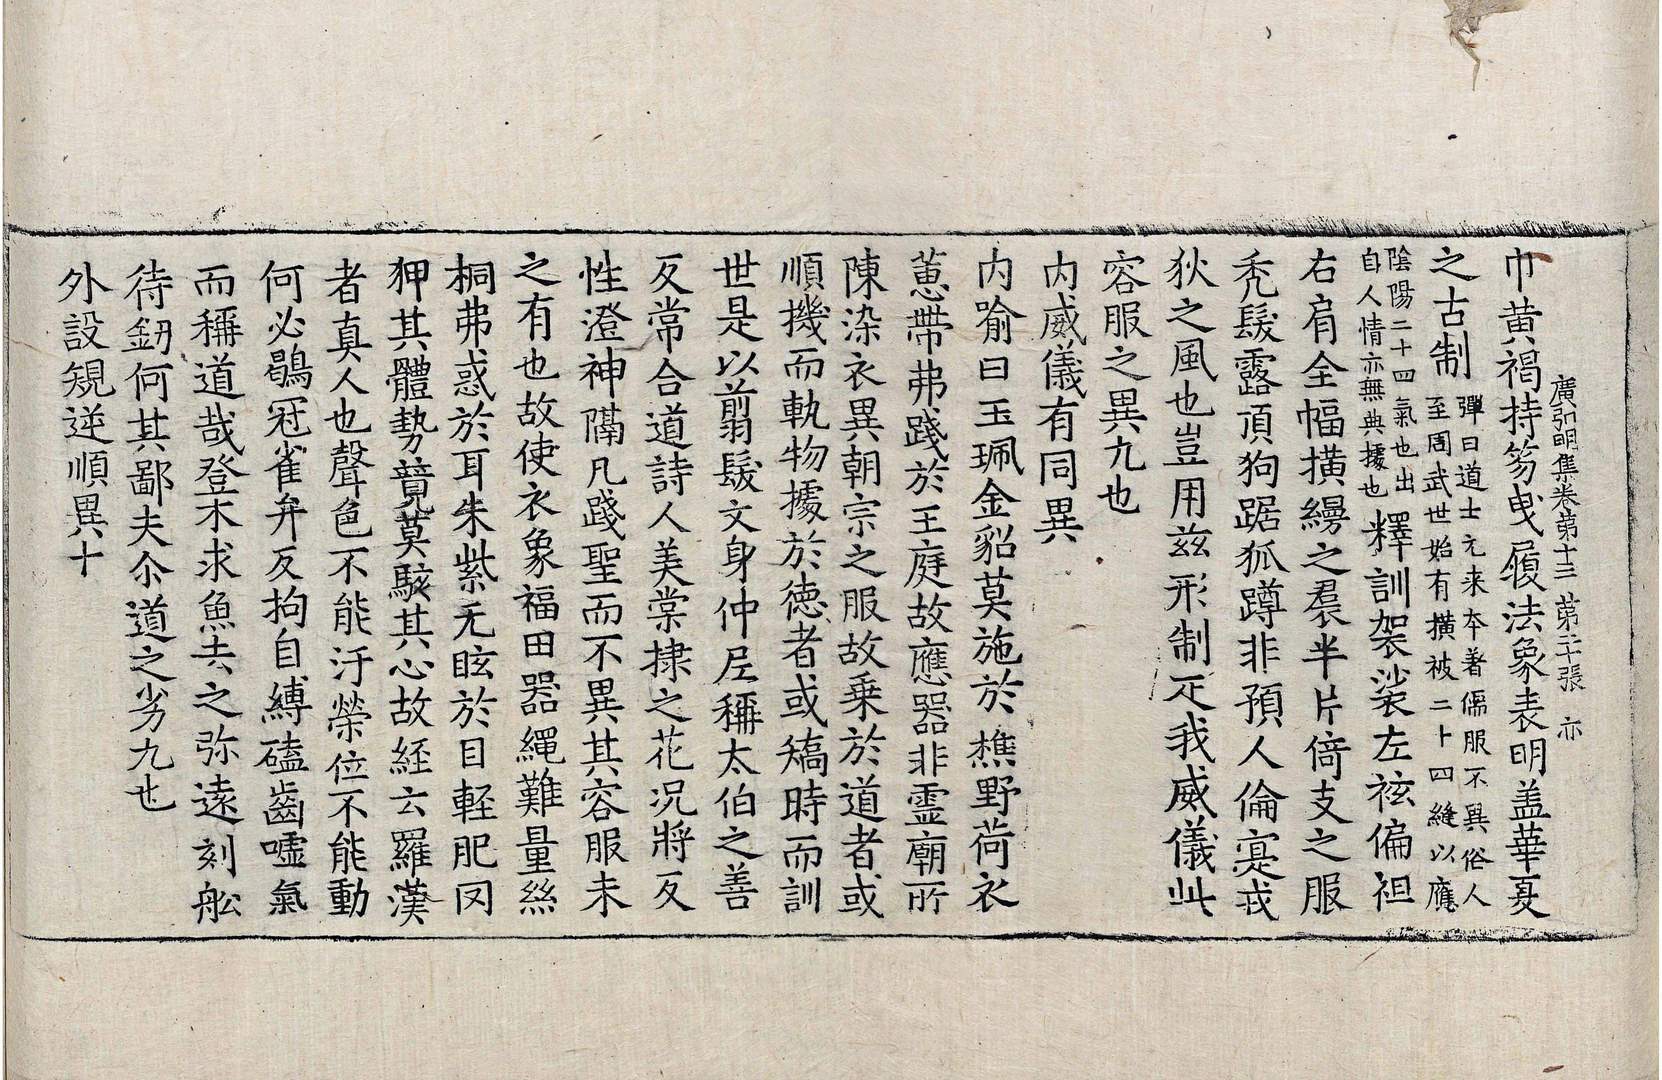 廣弘明集卷第十三 第二十張 亦
巾黃褐持笏曳履法象表明盖華夏
之古制彈曰道士元来本著儒服不異俗人至周武世始有橫被二十四縫以應
陰陽二十四氣也出自人情亦無典據也釋訓袈裟左衽偏袒
右肩全幅横縵之裙半片倚支之服
禿髮露頂狗踞狐蹲非預人倫寔戎
狄之風也豈用兹形制疋我威儀此
容服之異九也
内威儀有同異
内喻曰玉珮金貂莫施於樵野荷衣
蕙帶弗踐於王庭故應器非霊廟所
陳染衣異朝宗之服故乗於道者或
順機而軌物據於徳者或矯時而訓
世是以翦髮文身仲尼稱太伯之善
反常合道詩人美棠棣之花况將反
性澄神隔凡踐聖而不異其容服未
之有也故使衣象福田器繩難量絲
桐弗惑於耳朱紫无眩於目軽肥罔
狎其體勢競莫駭其心故経云羅漢
者真人也聲色不能汙榮位不能動
何必鶡冠雀弁反拘自縛磕齒嘘氣
而稱道哉登木求魚去之弥遠刻舩
待釰何其鄙夫尒道之劣九也
外設規逆順異十